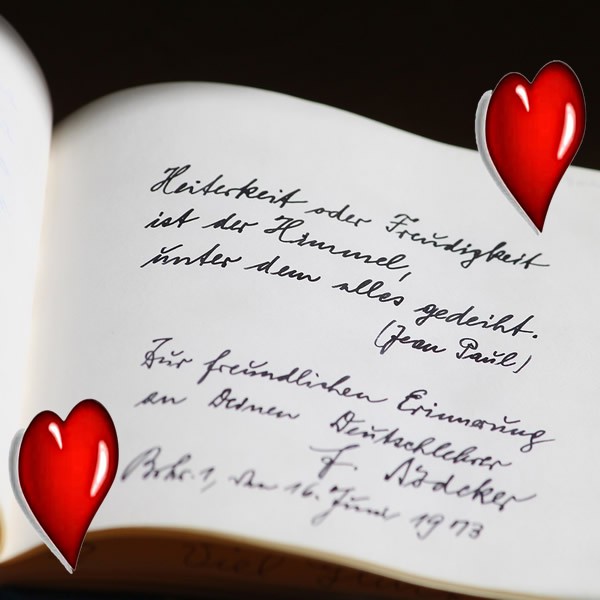 Heiterkeit oder Freudigkeit
ist der Himmel,
unter dem alles gedeiht.
(Jean Paul)
Zur freundlichen Erinnerung
an Deinen Deutschlehrer
F.
den 16. Juni 1973